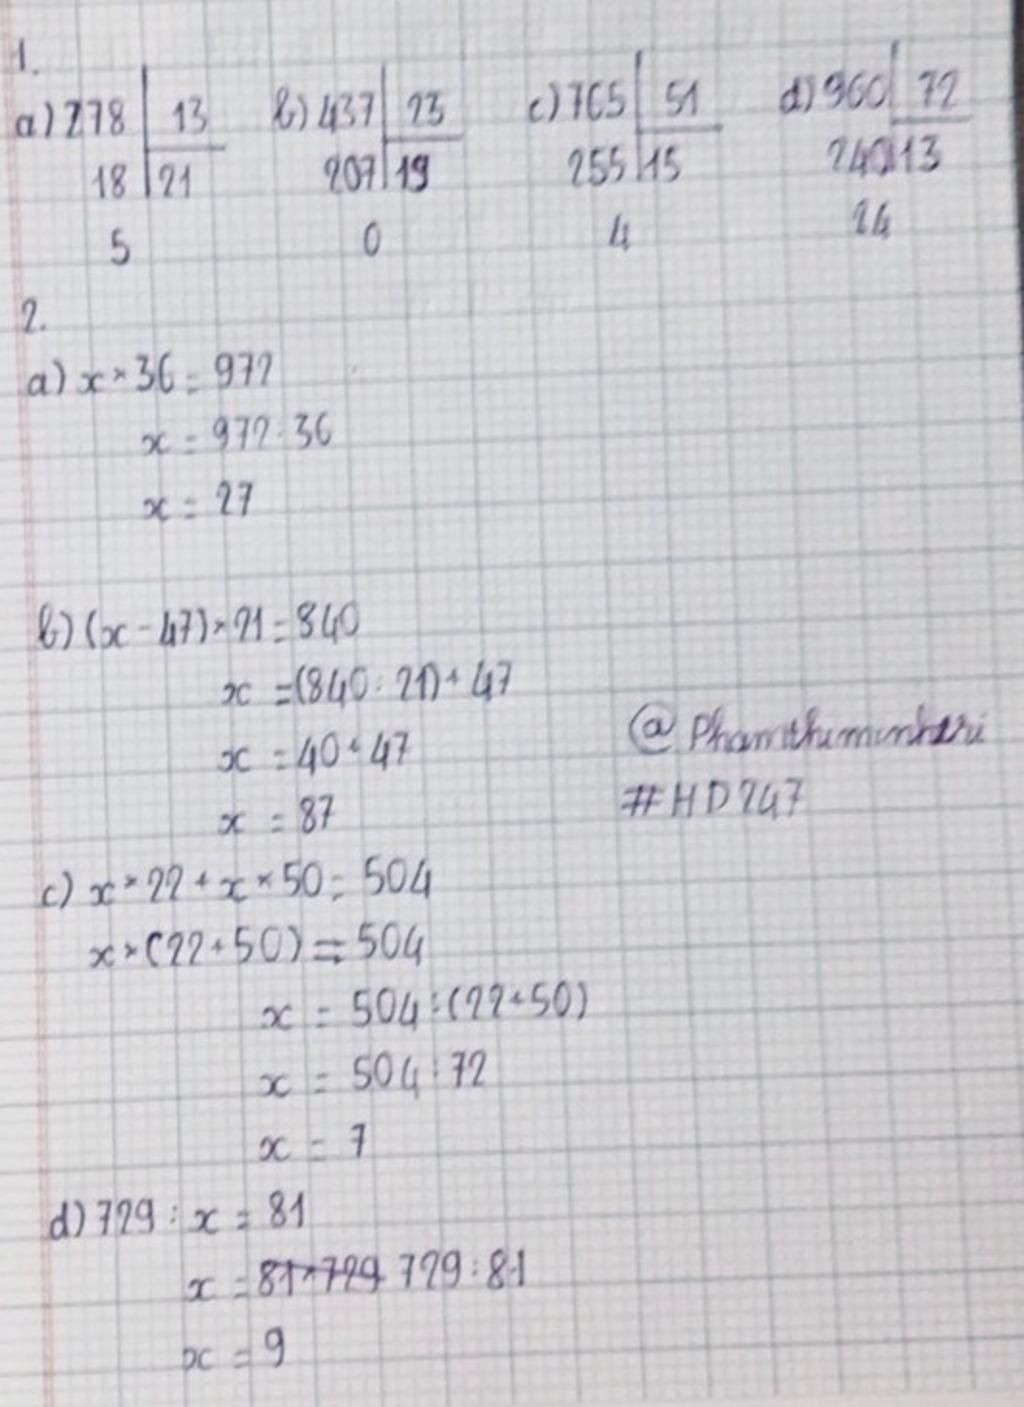 1.
a) 278 13 b) 437 23 c) 765 51 d) 960 72
18 21 207 19 255 15 240 13
5 0 4 24
2.
a) x × 36 = 972
x = 972 : 36
x = 27
b) (x - 47) × 21 = 840
x = (840 : 21) + 47
x = 40 + 47
@
x = 87
#HD247
c) x × 22 + x × 50 = 504
x × (22 + 50) = 504
x = 504 : (22 + 50)
x = 504 : 72
x = 7
d) 729 : x = 81
x = 81 × 729 729 : 81
x = 9